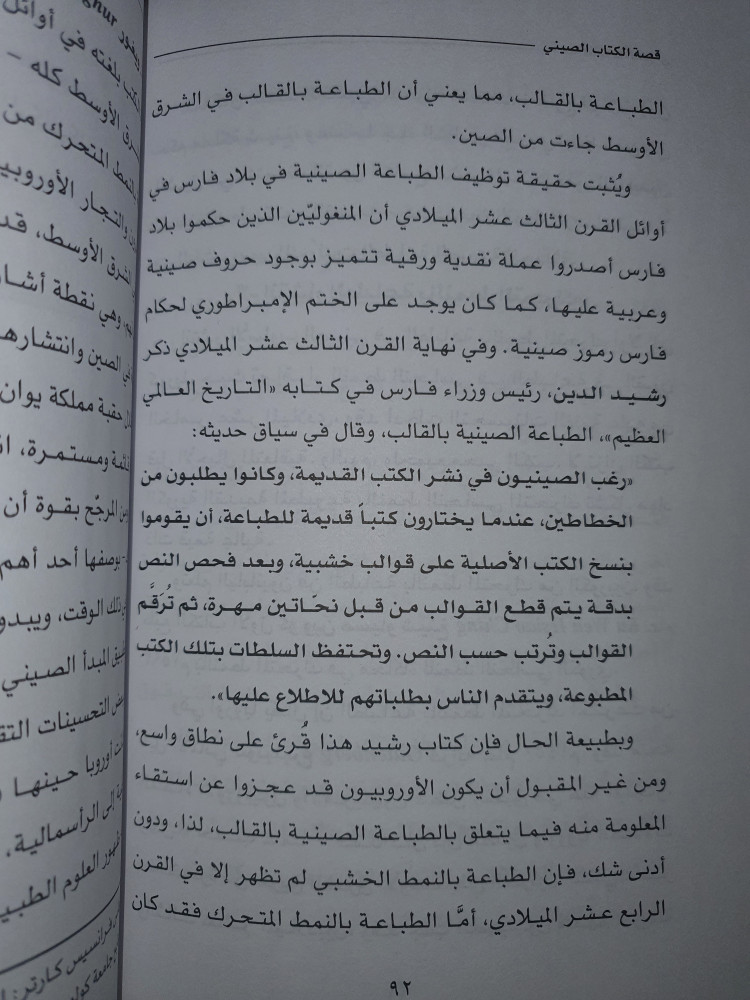 قصة الكتاب الصيني
الطباعة بالقالب، مما يعني أن الطباعة بالقالب في الشرق
الأوسط جاءت من الصين.
ويُثبت حقيقة توظيف الطباعة الصينية في بلاد فارس في
أوائل القرن الثالث عشر الميلادي أن المنغوليّين الذين حكموا بلاد
فارس أصدروا عملة نقدية ورقية تتميز بوجود حروف صينية
وعربية عليها، كما كان يوجد على الختم الإمبراطوري لحكام
فارس رموز صينية. وفي نهاية القرن الثالث عشر الميلادي ذكر
رشيد الدين، رئيس وزراء فارس في كتابه «التاريخ العالمي
العظيم»، الطباعة الصينية بالقالب، وقال في سياق حديثه:
«رغب الصينيون في نشر الكتب القديمة، وكانوا يطلبون من
الخطاطين، عندما يختارون كتباً قديمة للطباعة، أن يقوموا
بنسخ الكتب الأصلية على قوالب خشبية، وبعد فحص النص
بدقة يتم قطع القوالب من قبل نحّاتين مهرة، ثم تُرَقَّم
القوالب وتُرتب حسب النص. وتحتفظ السلطات بتلك الكتب
المطبوعة، ويتقدم الناس بطلباتهم للاطلاع عليها».
وبطبيعة الحال فإن كتاب رشيد هذا قُرئ على نطاق واسع،
ومن غير المقبول أن يكون الأوروبيون قد عجزوا عن استقاء
المعلومة منه فيما يتعلق بالطباعة الصينية بالقالب، لذا، ودون
أدنى شك، فإن الطباعة بالنمط الخشبي لم تظهر إلا في القرن
الرابع عشر الميلادي، أمَّا الطباعة بالنمط المتحرك فقد كان
٩٢
لكتب بلغته في أوائل
الأوسط كله –
بالنمط المتحرك من
والتجار الأوروبي
الشرق الأوسط، قد
وهي نقطة أشا
في الصين وانتشارها
حقبة مملكة يوان
ومستمرة، ا
من المرجّح بقوة أن
بوصفها أحد أهم
ذلك الوقت، ويبدو
المبدأ الصيني
التحسينات التق
أوروبا حينها
إلى الرأسمالية،
ظهور العلوم الطبي
فرانسيس كارتر:
جامعة كولو